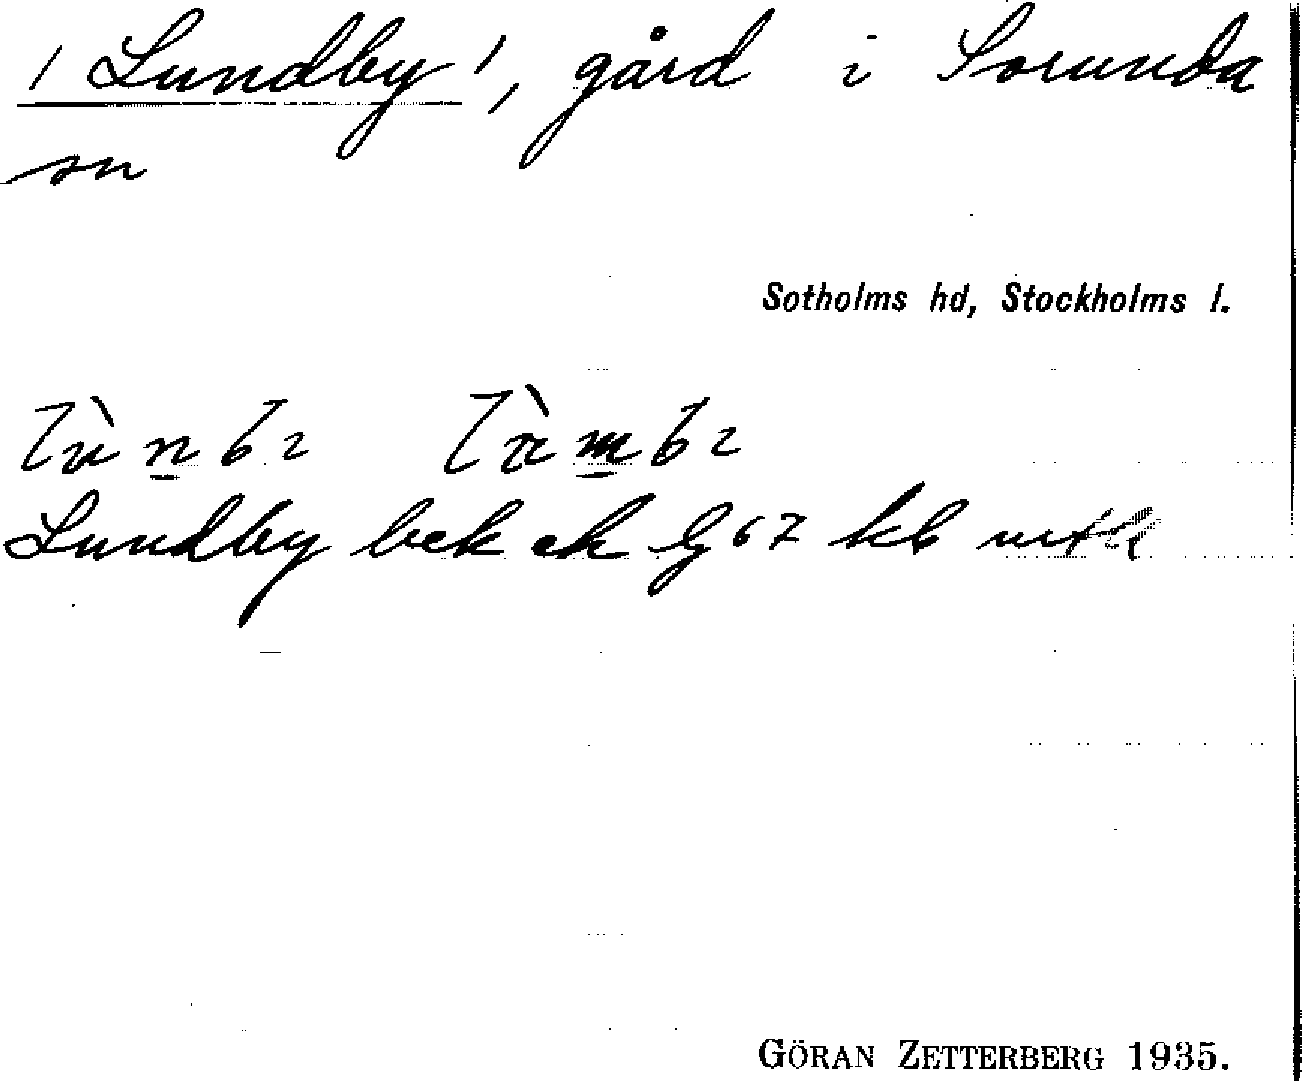 / Lundby /, gård i Sorunda
sn
Sotholms hd, Stockholms l.
Lundby bek ek G 67 kb
GÖRAN ZETTERBERG 1935.